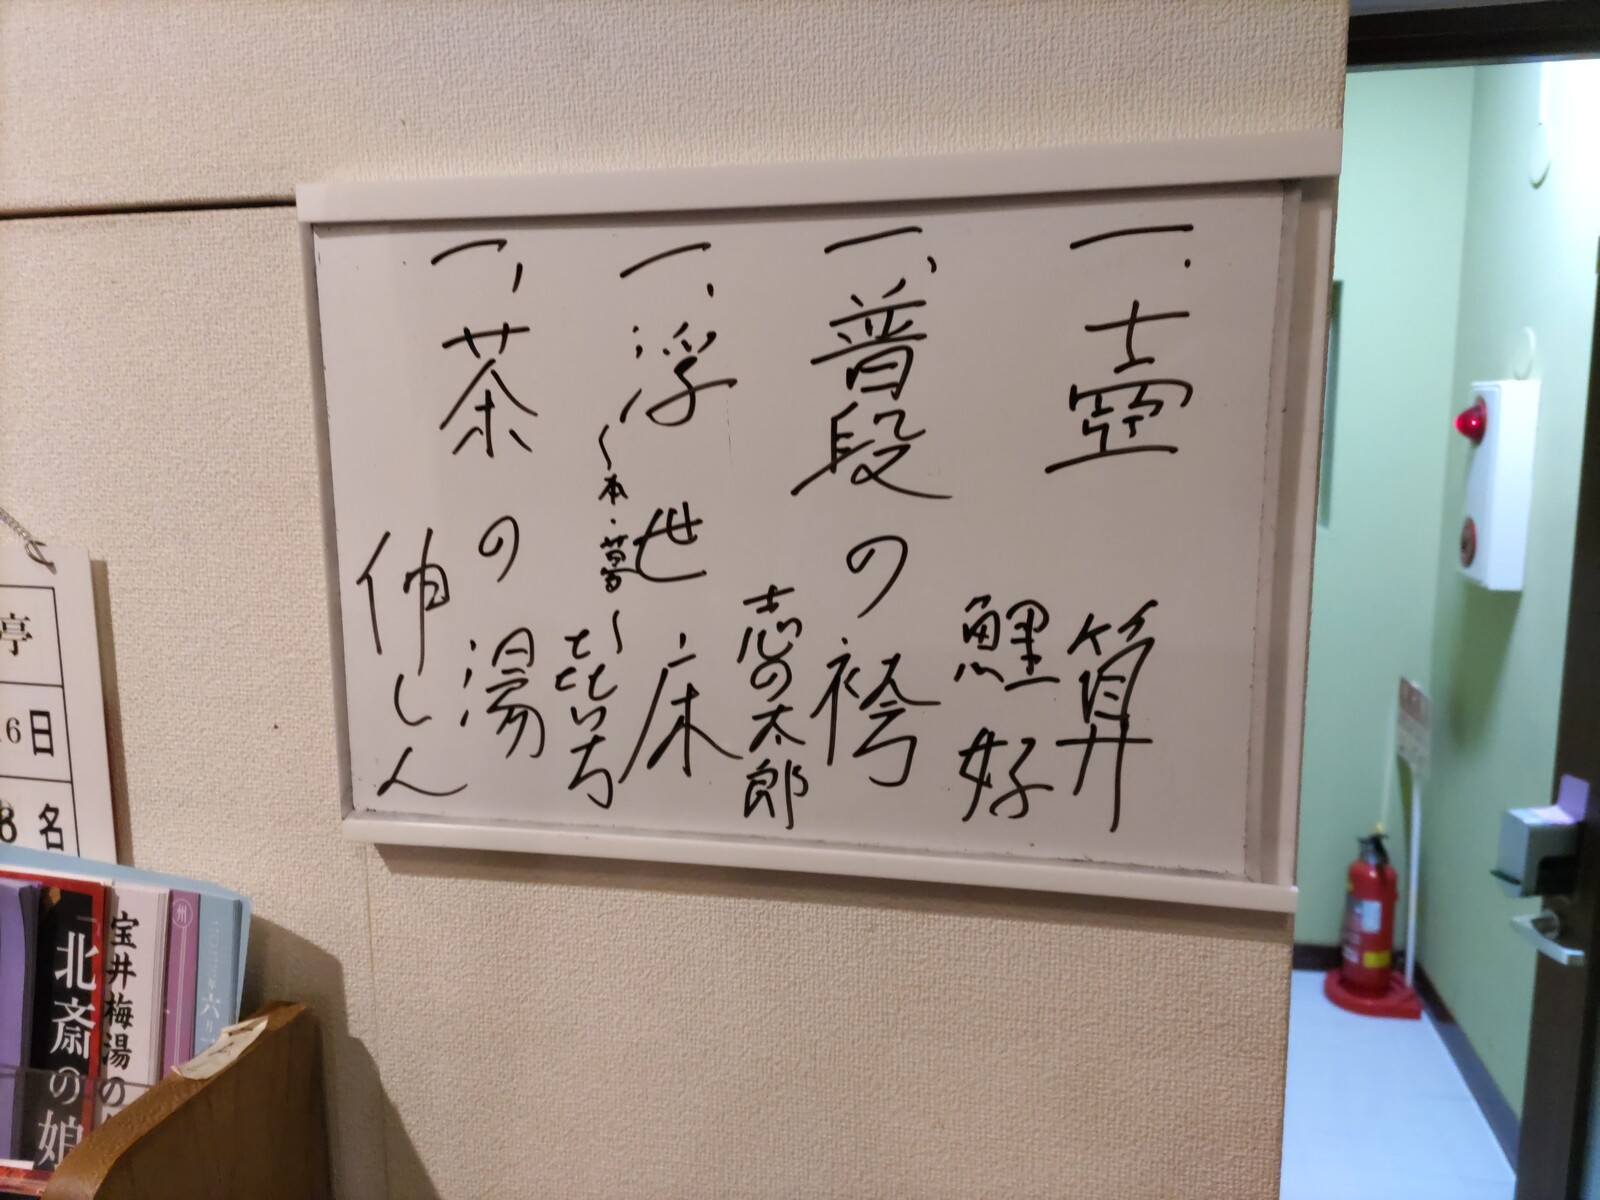 一、壺算
鯉好
一、普段の袴
志の太郎
一、浮世床
〜本・夢〜
㐂いち
一、茶の湯
伸しん
亭
6日
8名
「北斎の娘
宝井梅湯の
州
六月